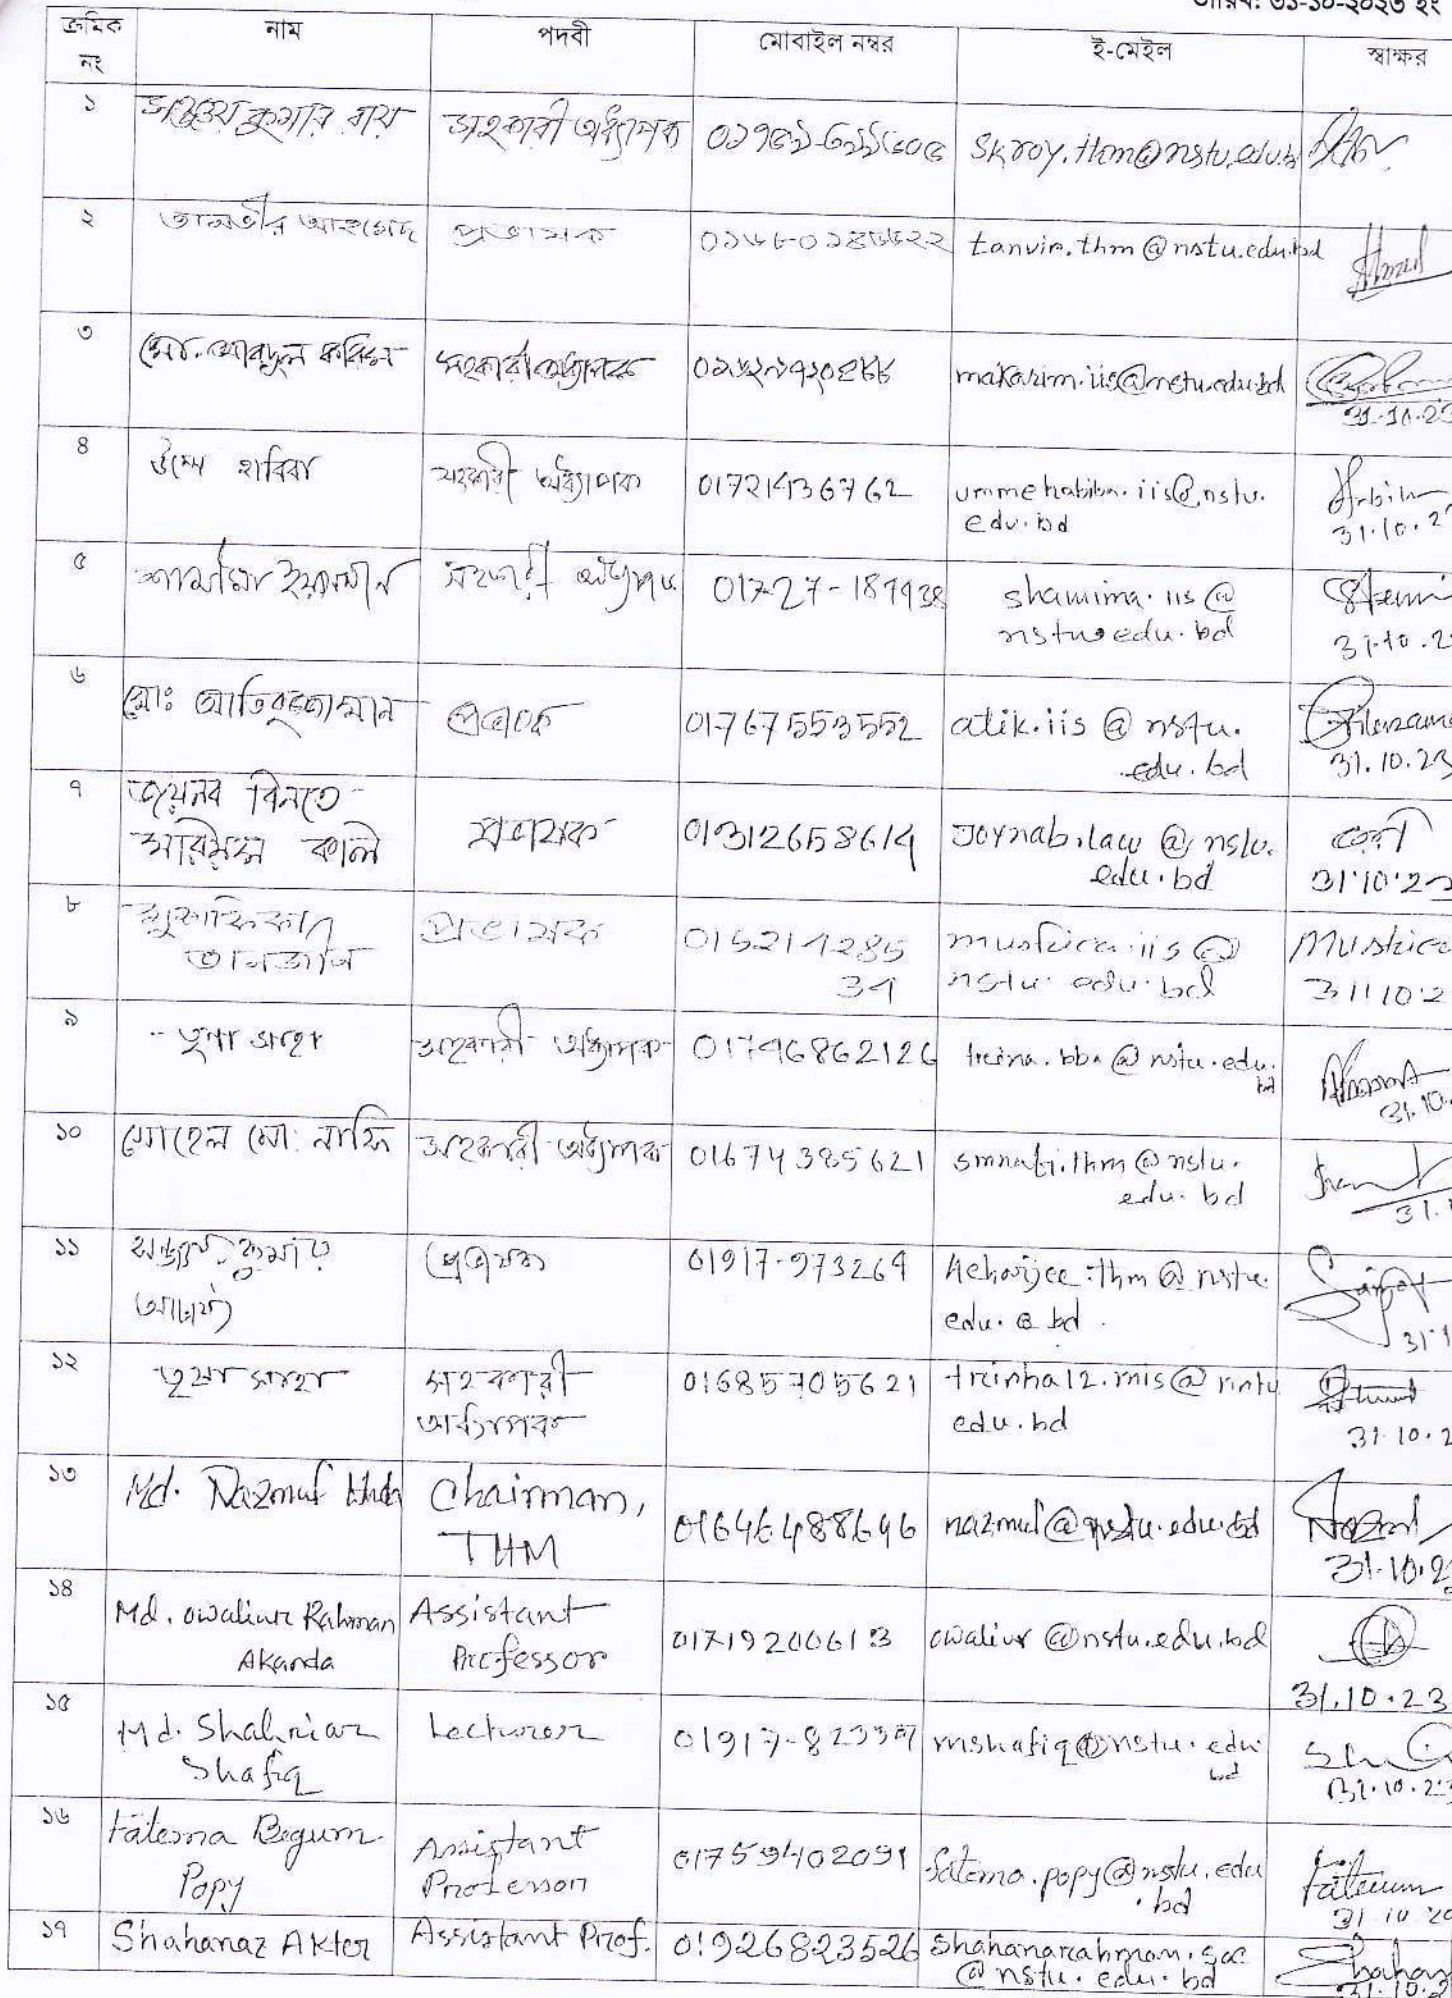 তারিখ: ৩১-১০-২০২৩ ইং
ক্রমিক নং নাম পদবী মোবাইল নম্বর ই-মেইল স্বাক্ষর
১ সঞ্জয় কুমার রায় সহকারী অধ্যাপক skroy.thm@nstu.edu.bd
২ তানভীর আহমেদ প্রভাষক tanvir.thm@nstu.edu.bd
৩ মো. আবদুল করিম সহকারী অধ্যাপক makarim.iis@nstu.edu.bd
31.10.23
৪ উম্মে হাবিবা সহকারী অধ্যাপক 01721436762 ummehabiba.iis@nstu.
edu.bd
31.10.2
৫ শামীমা ইয়াসমীন সহকারী অধ্যাপক 01727-187938 shamima.iis@
nstu.edu.bd
31.10.2
৬ মোঃ আতিকুজ্জামান প্রভাষক 01767553552 atik.iis@nstu.
edu.bd
31.10.23
৭ জয়নব বিনতে
প্রভাষক 01312658614 Joynab.law@nstu.
edu.bd
31.10.23
৮ মুশফিকাত
তানজীন
প্রভাষক 015214285
34
musfica.iis@
nstu.edu.bd
31.10.2
৯ তৃণা সাহা সহকারী অধ্যাপক 01746862126 treena.bba@nstu.edu.
bd
31.10.
১০ সোহেল মো: নাফি সহকারী অধ্যাপক 01674385621 smnafi.thm@nstu.
edu.bd
31.1
১১ সঞ্জয় কুমার
আচার্য্য
প্রভাষক 01917-973264 Acharjee.thm@nstu.
edu.@bd.
31.1
১২ তৃষা সাহা সহকারী
অধ্যাপক
01685705621
edu.bd
31.10.2
১৩ Md. Nazmul Huda Chairman,
THM
01646488646 nazmul@nstu.edu.bd Nazmul
31.10.23
১৪ Md. Owaliur Rahman
Akanda
Assistant
Professor
01719200613 owaliur@nstu.edu.bd
31.10.23
১৫ Md. Shahriar
Shafiq
Lecturer mshafiq@nstu.edu.
bd
31.10.23
১৬ Fatema Begum
Popy
Assistant
Professor
01759402091 fatema.popy@nstu.edu
.bd
Fatema
31.10.20
১৭ Shahanaz Akter Assistant Prof. 01926823526 shahanarahman.soc
@nstu.edu.bd
31.10.2